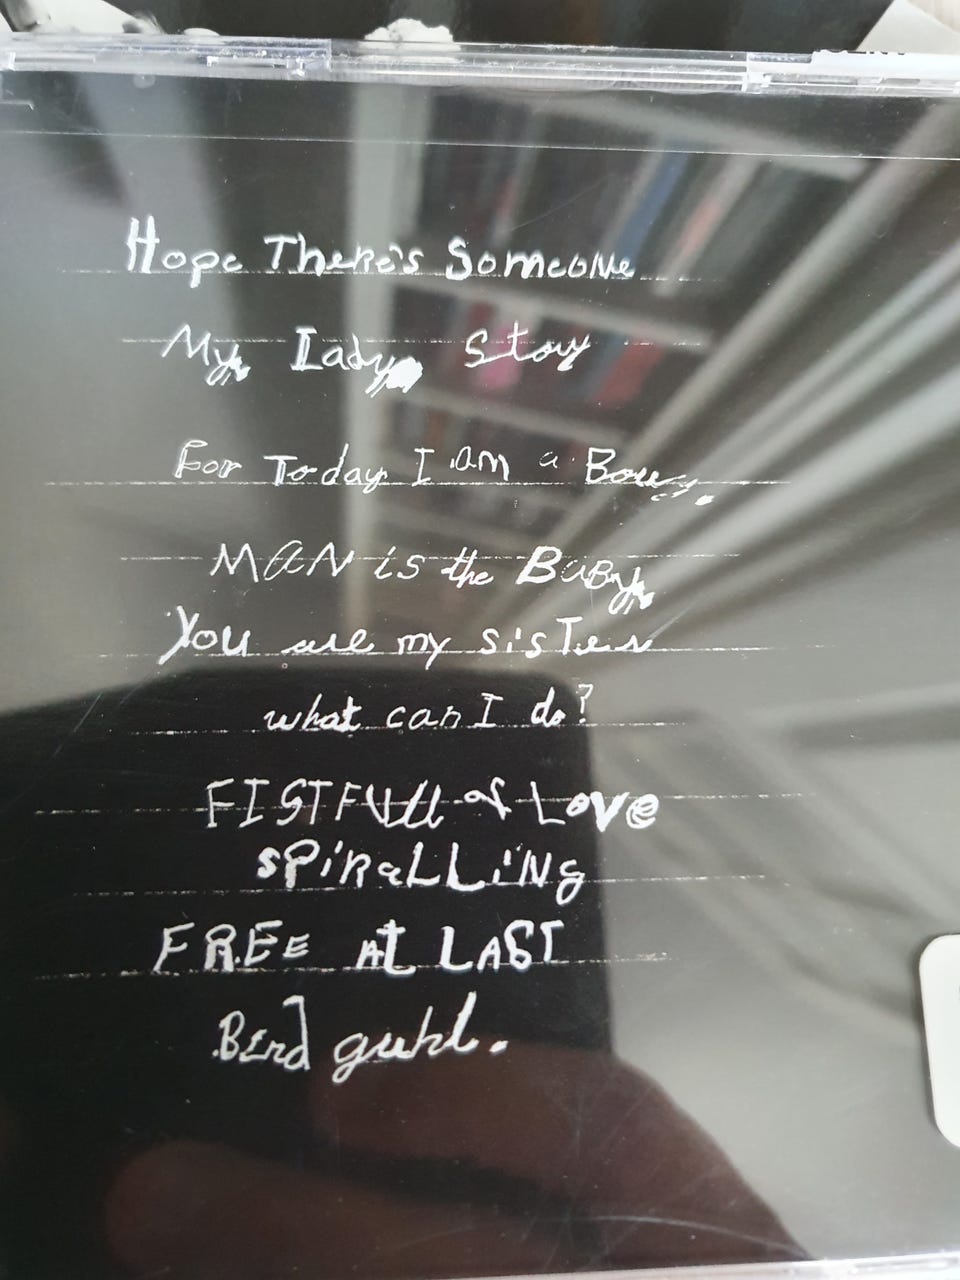 Hope There's Someone
My Lady Story
For Today I am a Boy
MAN is the Baby
You are my sister
what can I do?
FISTFull of Love
spiraLLiNg
FREE At LAST
Bird guhl.